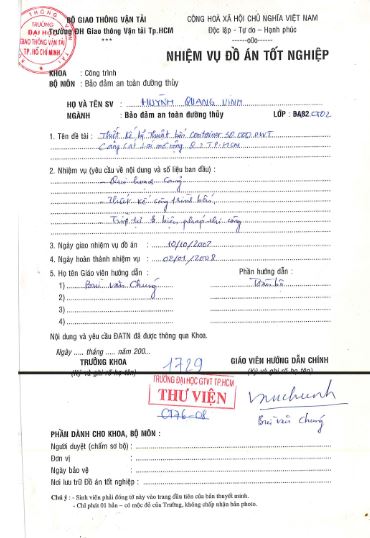 BỘ GIAO THÔNG VẬN TẢI
Trường ĐH Giao thông Vận tải Tp.HCM
CỘNG HOÀ XÃ HỘI CHỦ NGHĨA VIỆT NAM
Độc lập - Tự do - Hạnh phúc
TRƯỜNG
ĐẠI HỌC
GIAO THÔNG VẬN TẢI
TP. HỒ CHÍ MINH
NHIỆM VỤ ĐỒ ÁN TỐT NGHIỆP
KHOA : Công trình
BỘ MÔN : Bảo đảm an toàn đường thủy
HỌ VÀ TÊN SV : HUỲNH QUANG VINH
NGÀNH : Bảo đảm an toàn đường thủy LỚP : BA02
1. Tên đề tài : Thiết kế kỹ thuật bến container 50.000 DWT
Cảng Cát Lái mở rộng Q.2 TP.HCM
2. Nhiệm vụ (yêu cầu về nội dung và số liệu ban đầu) :
Qui hoạch cảng
Thiết kế công trình bến,
Trình tự & biện pháp thi công
3. Ngày giao nhiệm vụ đồ án : 10/10/2007
4. Ngày hoàn thành nhiệm vụ : 02/01/2008
5. Họ tên Giáo viên hướng dẫn : Phần hướng dẫn :
1) Bùi Văn Chúng Toàn bộ
2)
3)
4)
Nội dung và yêu cầu ĐATN đã được thông qua Khoa.
Ngày ..... tháng ..... năm 200...
TRƯỞNG KHOA
(Ký và ghi rõ họ tên)
1729
GIÁO VIÊN HƯỚNG DẪN CHÍNH
(Ký và ghi rõ họ tên)
TRƯỜNG ĐẠI HỌC GTVT TP.HCM
THƯ VIỆN
Bùi Văn Chúng
PHẦN DÀNH CHO KHOA, BỘ MÔN :
Người duyệt (chấm sơ bộ) :
Đơn vị :
Ngày bảo vệ :
Nơi lưu trữ Đồ án tốt nghiệp :
Chú ý : - Sinh viên phải đóng tờ này vào trang đầu tiên của bản thuyết minh.
- Chỉ phát 01 bản – có mộc đỏ của Trường, không chấp nhận bản photo.